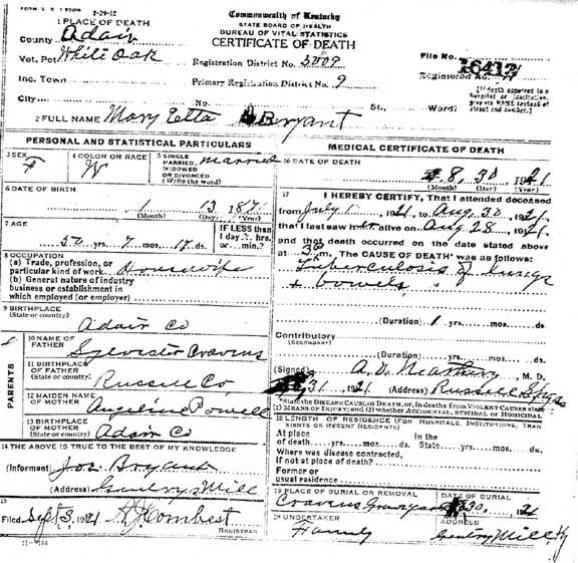 2-29-12
1 PLACE OF DEATH
County Adair
Vot. Pct. White Oak
Inc. Town
City
No.
St.,
Ward)
Commonwealth of Kentucky
STATE BOARD OF HEALTH
BUREAU OF VITAL STATISTICS
CERTIFICATE OF DEATH
Registration District No.
Primary Registration District No. 9
File No.
Registered No.
2 FULL NAME Mary Etta Bryant
PERSONAL AND STATISTICAL PARTICULARS
3 SEX F
4 COLOR OR RACE W
5 SINGLE MARRIED, WIDOWED OR DIVORCED (Write the word) married
6 DATE OF BIRTH
1 13 187
(Month) (Day) (Year)
7 AGE
50 yrs. 7 mos. ds.
IF LESS than 1 day, hrs. or min.?
8 OCCUPATION
(a) Trade, profession, or particular kind of work Housewife
(b) General nature of industry
business or establishment in
which employed (or employer)
9 BIRTHPLACE
(State or country)
Adair Co
PARENTS
10 NAME OF FATHER Sylvester Cravens
11 BIRTHPLACE OF FATHER (State or country) Russell Co
12 MAIDEN NAME OF MOTHER Angeline Powell
13 BIRTHPLACE OF MOTHER (State or country) Adair Co
14 THE ABOVE IS TRUE TO THE BEST OF MY KNOWLEDGE
(Informant) Joe Bryant
(Address) Gentrys Mill
15
Filed Sept 3, 1921
REGISTRAR
MEDICAL CERTIFICATE OF DEATH
16 DATE OF DEATH
8, 30 1921
(Month) (Day) (Year)
17 I HEREBY CERTIFY, That I attended deceased
from July 1, 1921, to Aug 30, 1921,
that I last saw alive on Aug 28, 1921,
and that death occurred on the date stated above
at m. The CAUSE OF DEATH was as follows:
Tuberculosis of Lungs
+ bowels,
(Duration) 1 yrs. mos. ds.
Contributory
(SECONDARY)
(Duration) yrs. mos. ds.
(Signed) M. D.
31 1921 (Address) Russell Spgs
State the DISEASE CAUSING DEATH, or, in deaths from VIOLENT CAUSES state
(1) MEANS OF INJURY; and (2) whether ACCIDENTAL, SUICIDAL OR HOMICIDAL
18 LENGTH OF RESIDENCE (FOR HOSPITALS, INSTITUTIONS, TRANSIENTS OR RECENT RESIDENTS)
At place of death yrs. mos. ds. In the State yrs. mos. ds.
Where was disease contracted,
if not at place of death?
Former or
usual residence
19 PLACE OF BURIAL OR REMOVAL Cravens Graveyard
DATE OF BURIAL 30, 1921
20 UNDERTAKER Family
ADDRESS Gentry Mill, Ky